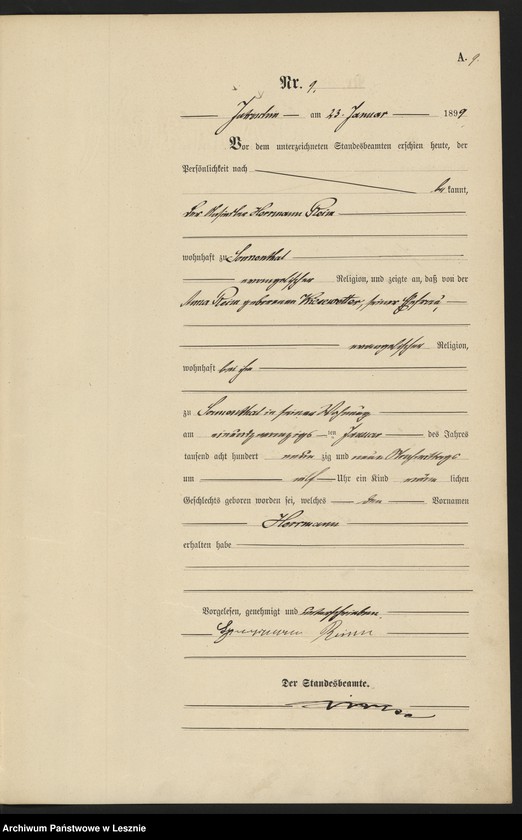 A. 9.
Nr. 9.
am 23. Januar 1899
Vor dem unterzeichneten Standesbeamten erschien heute, der
Persönlichkeit nach
be kannt,
der Herrmann
wohnhaft zu Sonnenthal
evangelischer Religion, und zeigte an, daß von der
Anna geborenen seiner Ehefrau,
evangelischer Religion,
wohnhaft bei ihm
zu Sonnenthal in seiner Wohnung
am einundzwanzigsten Januar des Jahres
tausend acht hundert neun zig und neun Nachmittags
um Uhr ein Kind männ lichen
Geschlechts geboren worden sei, welches den Vornamen
Herrmann
erhalten habe
Vorgelesen, genehmigt und unterschrieben.
Herrmann
Der Standesbeamte.
Archiwum Państwowe w Lesznie